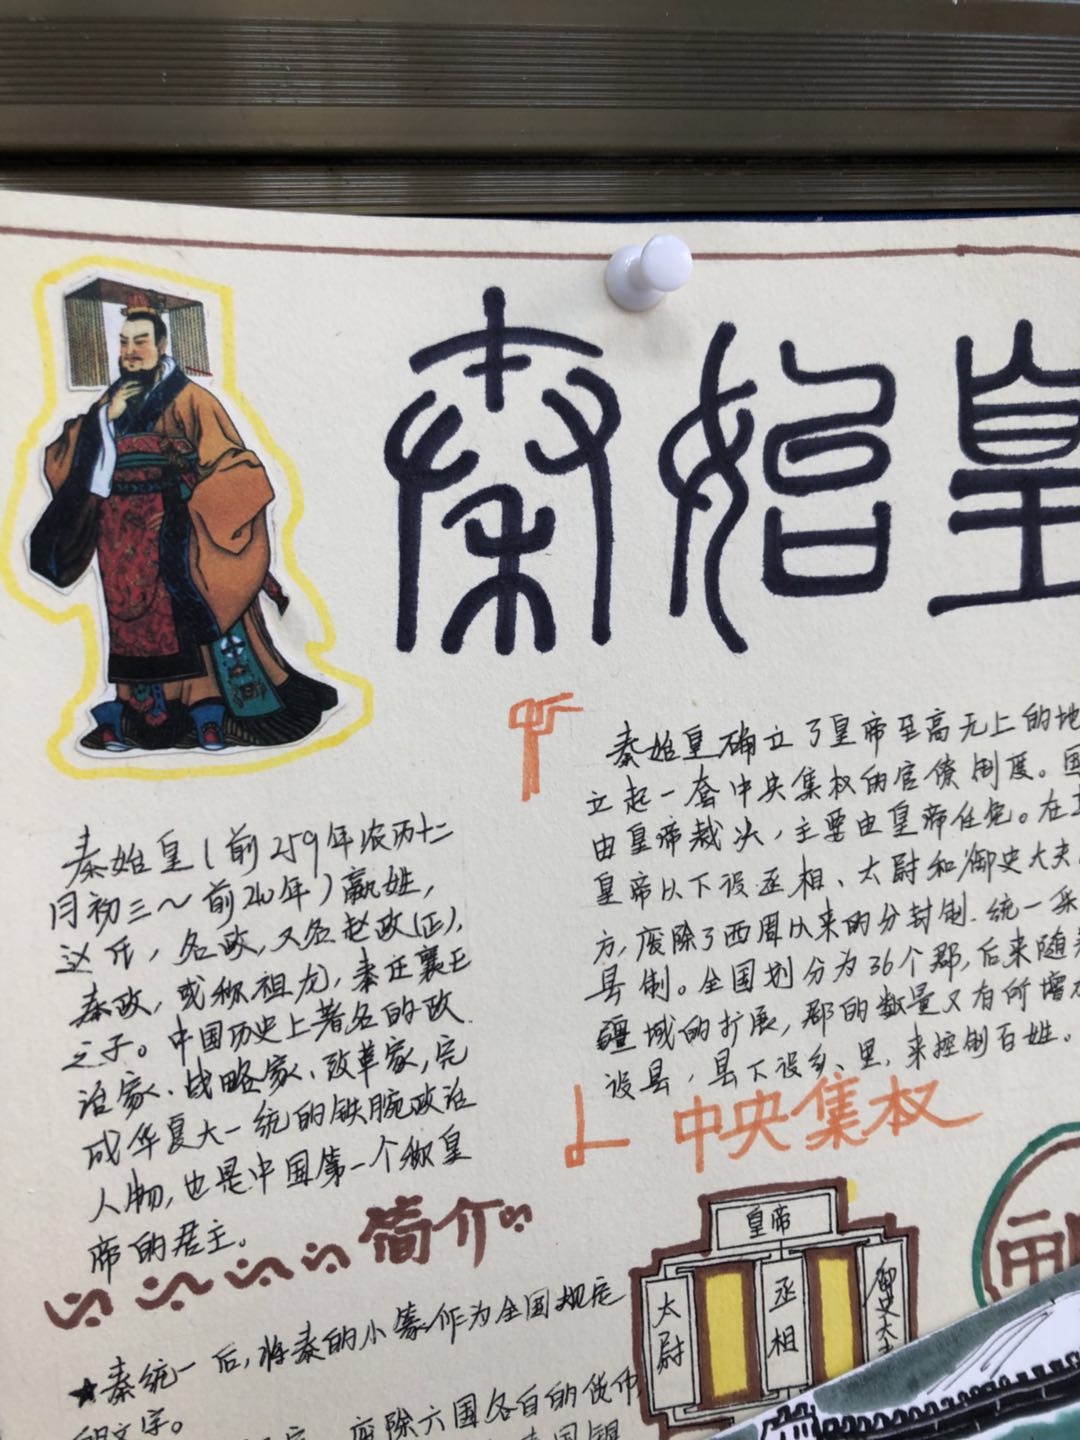 秦始皇
秦始皇(前259年农历十二
月初三~前210年)嬴姓,
赵氏,名政,又名赵政(正),
秦政,或称祖龙,秦庄襄王
之子。中国历史上著名的政
治家、战略家、改革家,完
成华夏大一统的铁腕政治
人物,也是中国第一个称皇
帝的君主。
简介
秦始皇确立了皇帝至高无上的地
立起一套中央集权的官僚制度。国
由皇帝裁决,主要由皇帝任免。在
皇帝以下设丞相、太尉和御史大夫
方,废除了西周以来的分封制.统一采
县制。全国划分为36个郡,后来随着
疆域的扩展,郡的数量又有所增
设县,县下设乡、里,来控制百姓。
中央集权
皇帝
太尉
丞相
御史大
★秦统一后,将秦的小篆作为全国规定
的文字。
废除六国各自的货币